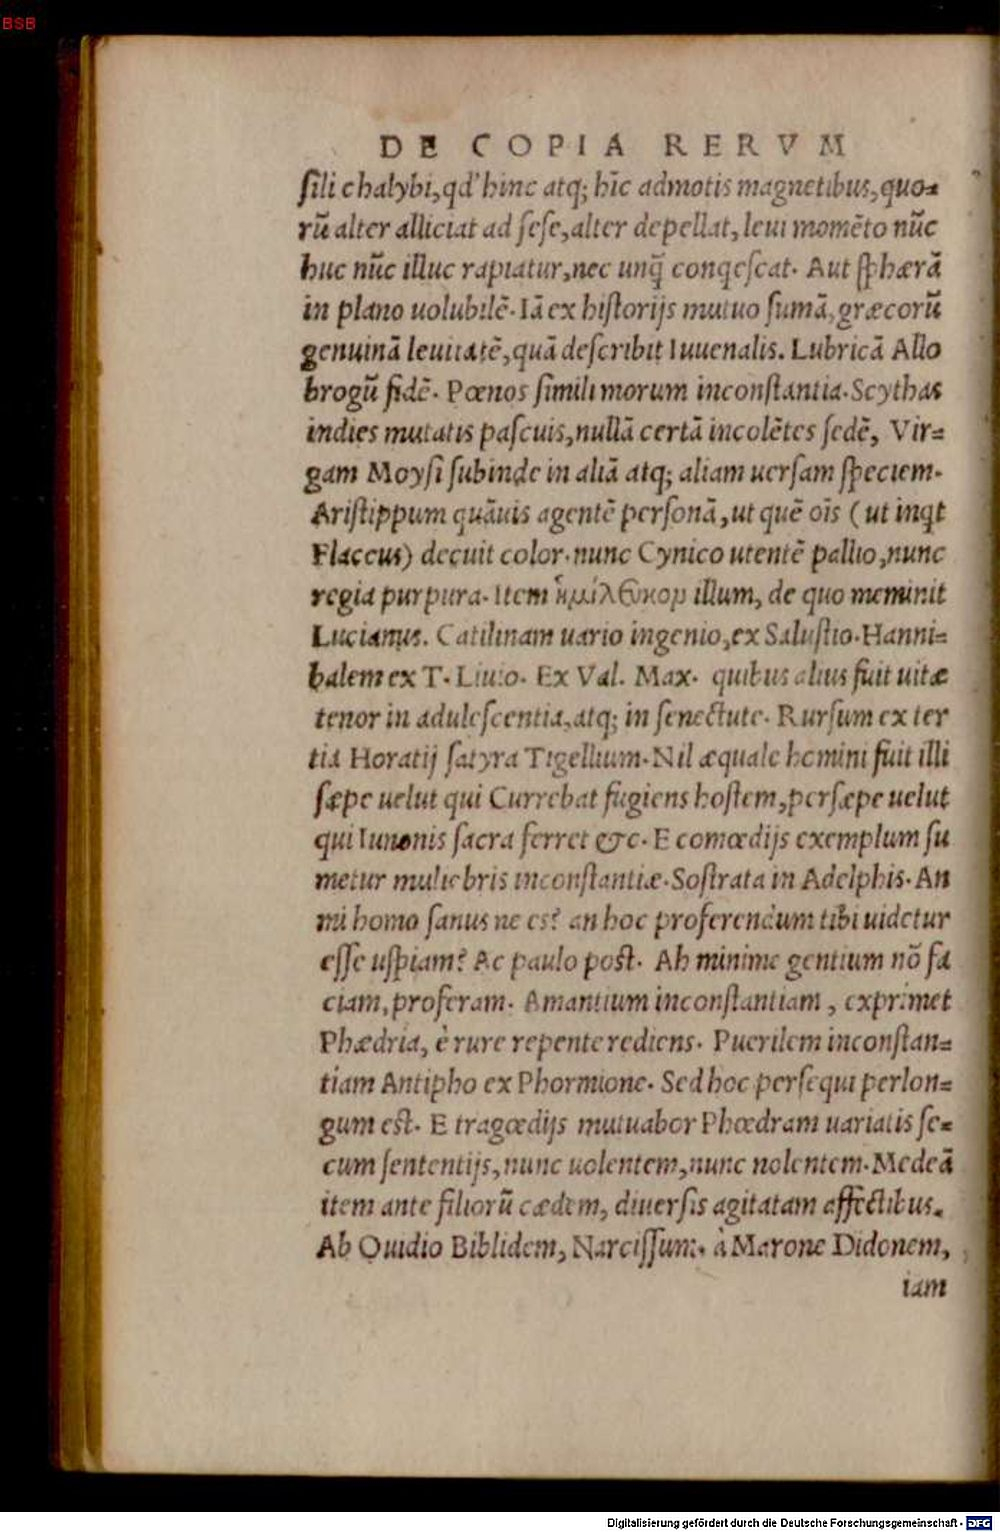 BSB
DE COPIA RERVM
ſili chalybi, qd' hinc atq; hīc admotis magnetibus, quo-
rū alter alliciat ad ſeſe, alter depellat, leui momēto nūc
huc nūc illuc rapiatur, nec unq̄ conqeſcat. Aut ſphærā
in plano uolubilē. Iā ex hiſtorijs mutuo ſumā, græcorū
genuinā leuitatē, quā deſcribit Iuuenalis. Lubricā Allo
brogū fidē. Pœnos ſimili morum inconſtantia. Scythas
indies mutatis paſcuis, nullā certā incolētes ſedē, Vir=
gam Moyſi ſubinde in aliā atq; aliam uerſam ſpeciem.
Ariſtippum quāuis agentē perſonā, ut quē oīs (ut inqt
Flaccus) decuit color. nunc Cynico utentē pallio, nunc
regia purpura. Item illum, de quo meminit
Lucianus. Catilinam uario ingenio, ex Saluſtio. Hanni=
balem ex T. Liuio. Ex Val. Max. quibus alius fuit uitæ
tenor in aduleſcentia, atq; in ſenectute. Rurſum ex ter
tia Horatij ſatyra Tigellium. Nil æquale homini fuit illi
ſæpe uelut qui Currebat fugiens hoſtem, perſæpe uelut
qui Iunonis ſacra ferret &c. E comœdijs exemplum ſu
metur muliebris inconſtantiæ. Soſtrata in Adelphis. An
mi homo ſanus ne es? an hoc proferendum tibi uidetur
eſſe uſpiam? Ac paulo poſt. Ah minime gentium nō fa
ciam, proferam. Amantium inconſtantiam, exprimet
Phædria, è rure repente rediens. Puerilem inconſtan=
tiam Antipho ex Phormione. Sed hoc perſequi perlon=
gum eſt. E tragœdijs mutuabor Phœdram uariatis ſe-
cum ſententijs, nunc uolentem, nunc nolentem. Medeā
item ante filiorū cædem, diuerſis agitatam affectibus.
Ab Ouidio Biblidem, Narciſſum. à Marone Didonem,
iam
Digitalisierung gefördert durch die Deutsche Forschungsgemeinschaft - DFG